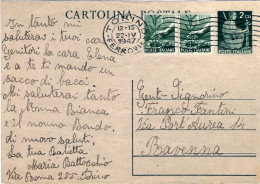 CARTOLINA POSTALE
In tanto mi
saluterai i tuoi cari
Genitori la cara Elena
e a te ti mando un
sacco di baci.
Mi saluterai tanto
la Nonna Bianca
e il nonno Bondo.
di nuovo saluti,
La tua
Maria Battocchio
Via Roma 255. Torino
TORINO
FERROVIA
12-13
22-IV
1947
POSTE ITALIANE
POSTE ITALIANE
2 LIRE
Gent. Signorino
Franco Fantini
Via Port'Aurea 14
Ravenna